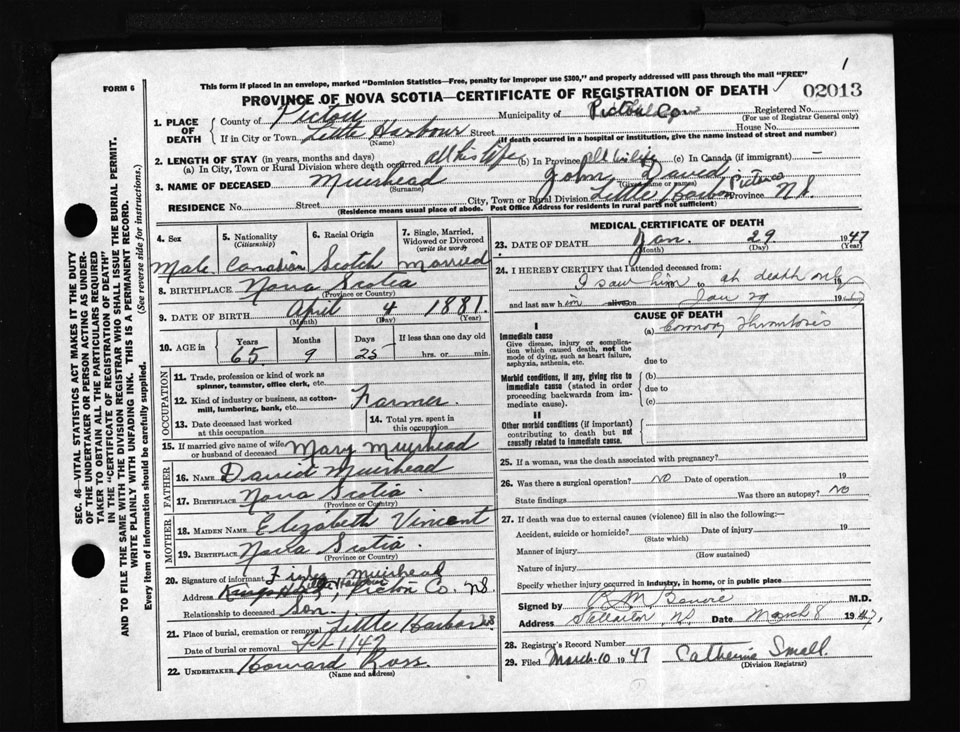 1
This form if placed in an envelope, marked "Dominion Statistics—Free, penalty for improper use $300," and properly addressed will pass through the mail "FREE"
FORM 6
PROVINCE OF NOVA SCOTIA—CERTIFICATE OF REGISTRATION OF DEATH
02013
1. PLACE OF DEATH
County of Pictou Municipality of Pictou Co Registered No.
(For use of Registrar General only)
If in City or Town Little Harbour Street House No.
(Name) (If death occurred in a hospital or institution, give the name instead of street and number)
2. LENGTH OF STAY (in years, months and days)
(a) In City, Town or Rural Division where death occurred all his life (b) In Province all his life (c) In Canada (if immigrant) —
3. NAME OF DECEASED Muirhead John David
(Surname) (Given name or names)
RESIDENCE No. Street City, Town or Rural Division Little Harbor Pictou Co Province N.S.
(Residence means usual place of abode. Post Office Address for residents in rural parts not sufficient)
4. Sex
Male
5. Nationality
(Citizenship)
Canadian
6. Racial Origin
Scotch
7. Single, Married, Widowed or Divorced
(write the word)
married
8. BIRTHPLACE Nova Scotia
(Province or Country)
9. DATE OF BIRTH April 4 1881
(Month) (Day) (Year)
10. AGE in Years Months Days If less than one day old
65 9 25 hrs. or min.
OCCUPATION
11. Trade, profession or kind of work as spinner, teamster, office clerk, etc.
12. Kind of industry or business, as cotton-mill, lumbering, bank, etc. Farmer.
13. Date deceased last worked at this occupation
14. Total yrs. spent in this occupation
15. If married give name of wife or husband of deceased Mary Muirhead
FATHER
16. NAME David Muirhead
17. BIRTHPLACE Nova Scotia.
(Province or Country)
MOTHER
18. MAIDEN NAME Elizabeth Vincent
19. BIRTHPLACE Nova Scotia.
(Province or Country)
20. Signature of informant Muirhead
Address Little Harbour, Pictou Co. N.S.
Relationship to deceased Son.
21. Place of burial, cremation or removal Little Harbor NS
Date of burial or removal Feb 1/47
22. UNDERTAKER Howard Ross.
(Name and address)
MEDICAL CERTIFICATE OF DEATH
23. DATE OF DEATH Jan. 29 1947
(Month) (Day) (Year)
24. I HEREBY CERTIFY that I attended deceased from:
I saw him to at death only 19
and last saw him alive on Jan 29 1947
CAUSE OF DEATH
I
Immediate cause
Give disease, injury or complication which caused death, not the mode of dying, such as heart failure, asphyxia, asthenia, etc.
(a) Coronary Thrombosis
due to
Morbid conditions, if any, giving rise to immediate cause (stated in order proceeding backwards from immediate cause).
(b)
due to
(c)
II
Other morbid conditions (if important) contributing to death but not causally related to immediate cause.
25. If a woman, was the death associated with pregnancy?
26. Was there a surgical operation? NO Date of operation 19
State findings Was there an autopsy? NO
27. If death was due to external causes (violence) fill in also the following:—
Accident, suicide or homicide? Date of injury 19
(State which)
Manner of injury
(How sustained)
Nature of injury
Specify whether injury occurred in industry, in home, or in public place
Signed by M.D.
Address Stellarton, N.S. Date March 8 1947.
28. Registrar's Record Number
29. Filed March. 10 1947 Catherine Small.
(Division Registrar)
SEC. 46—VITAL STATISTICS ACT MAKES IT THE DUTY
OF THE UNDERTAKER OR PERSON ACTING AS UNDER-
TAKER TO OBTAIN ALL THE PARTICULARS REQUIRED
IN THE "CERTIFICATE OF REGISTRATION OF DEATH"
AND TO FILE THE SAME WITH THE DIVISION REGISTRAR WHO SHALL ISSUE THE BURIAL PERMIT.
WRITE PLAINLY WITH UNFADING INK. THIS IS A PERMANENT RECORD.
Every item of Information should be carefully supplied. (See reverse side for instructions.)